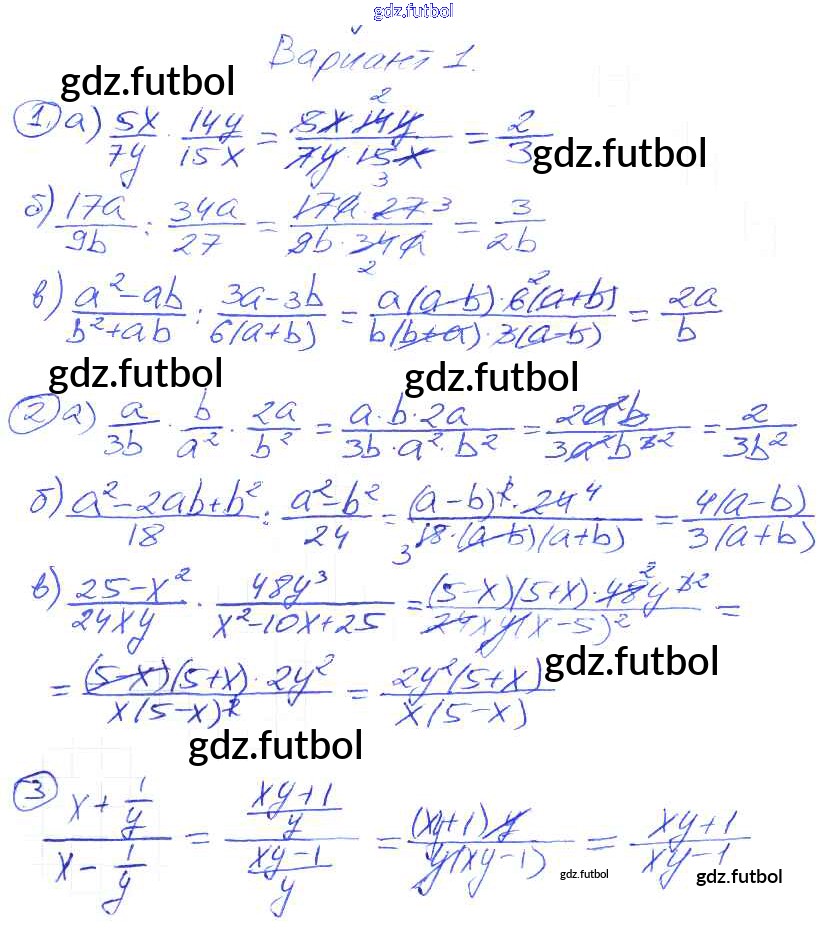 gdz.futbol
Вариант 1.
gdz.futbol
1. а) 5x/7y · 14y/15x = 5x·14y/7y·15x = 2/3
gdz.futbol
б) 17a/9b : 34a/27 = 17a·27/9b·34a = 3/2b
в) a²-ab/b²+ab : 3a-3b/6(a+b) = a(a-b)·6(a+b)/b(b+a)·3(a-b) = 2a/b
gdz.futbol gdz.futbol
2 а) a/3b · b/a² · 2a/b² = a·b·2a/3b·a²·b² = 2a²b/3a²b³ = 2/3b²
б) a²-2ab+b²/18 : a²-b²/24 = (a-b)²·24/18·(a-b)(a+b) = 4(a-b)/3(a+b)
в) 25-x²/24xy · 48y³/x²-10x+25 = (5-x)(5+x)·48y³/24xy(x-5)² =
= (5-x)(5+x)·2y²/x(5-x)² = 2y²(5+x)/x(5-x)
gdz.futbol
gdz.futbol
3 x+1/y / x-1/y = xy+1/y / xy-1/y = (xy+1)y/y(xy-1) = xy+1/xy-1
gdz.futbol gdz.futbol